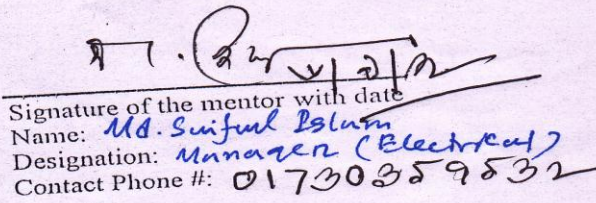 Signature of the mentor with date
Name: Md. Saiful Islam
Designation: Manager (Electrical)
Contact Phone #: 01730359532